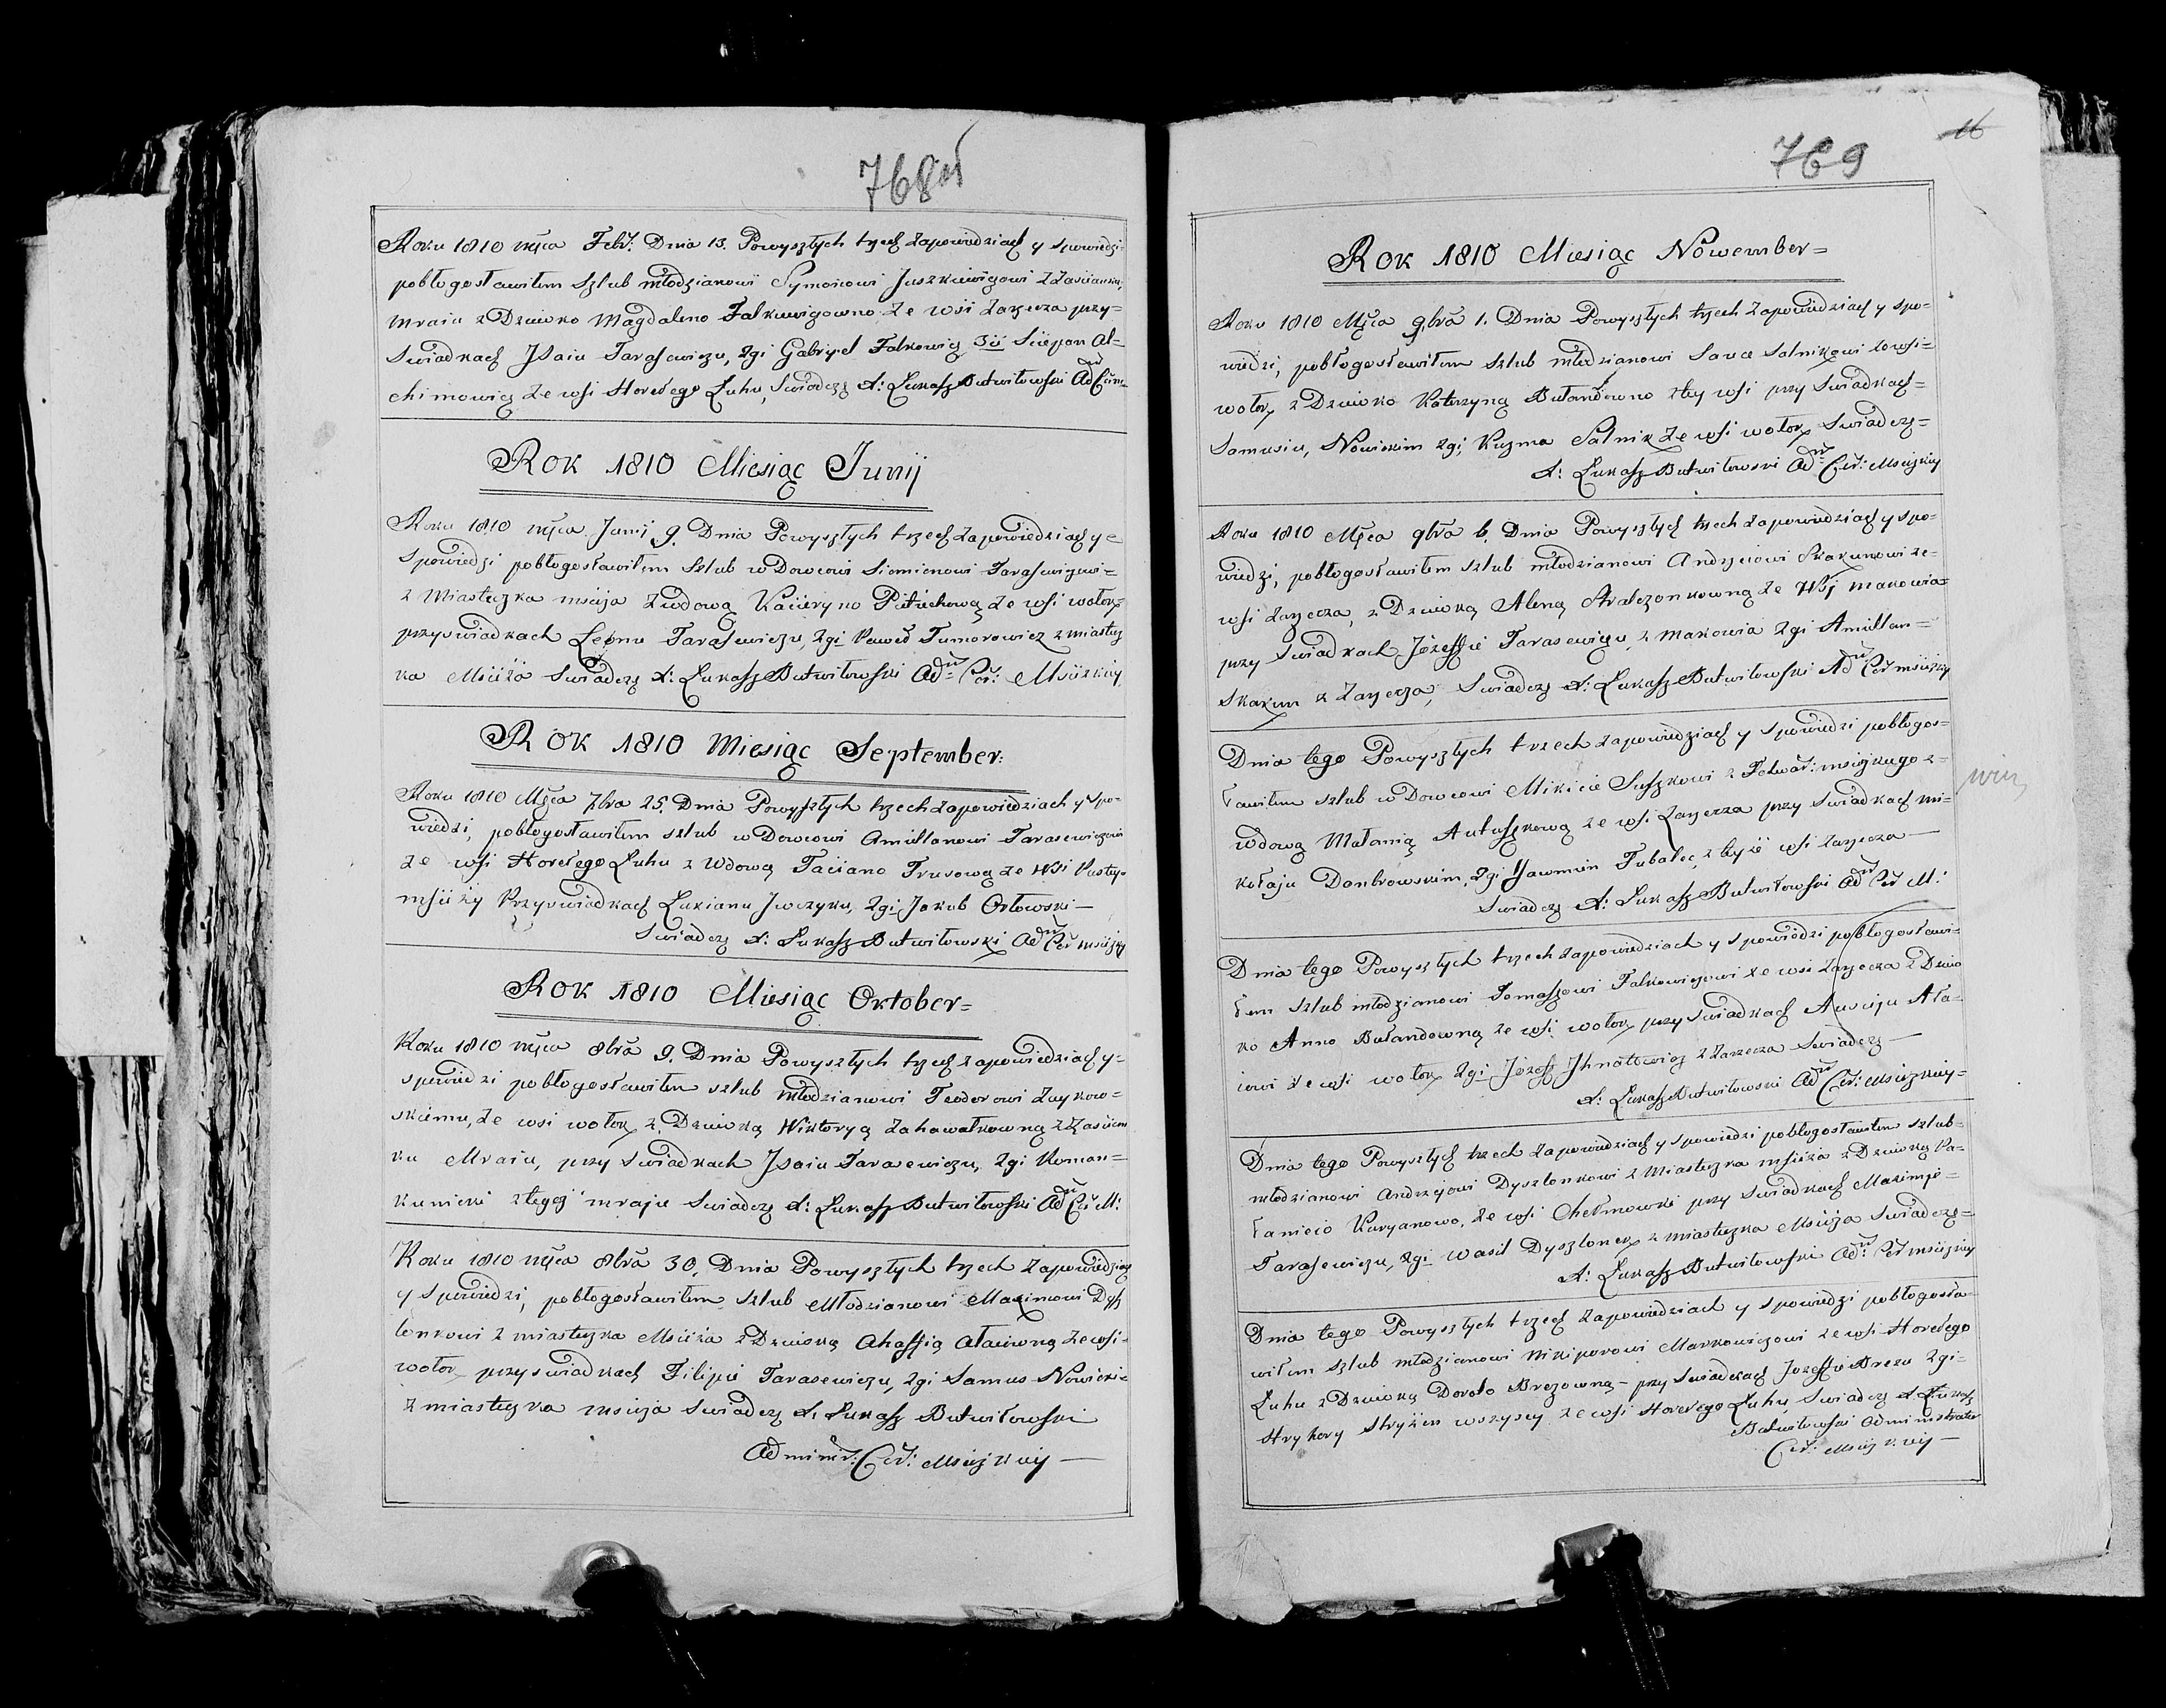 768
Roku 1810 msca Febr: Dnia 13. Powyszłych trzech zapowiedziach y spowiedzi
pobłogosławiłem szlub młodzianowi Symonowi Juszkiewiczowi z Zascianku
Mraiu z Dziewko Magdaleno Falkiewigowno ze wsi Zarzecza przy=
Swiadkach Jsaiu Tarasewiczu, 2gi Gabryel Falkowicz 3ci Sciepan Al=
chimowicz ze wsi Horełego Łuhu, Swiadczy X: Łukasz Butwiłowski Adm Cer:
Rok 1810 Miesiąc Junij
Roku 1810 msca Junij 9. Dnia Powyszłych trzech zapowiedziach y=
Spowiedzi pobłogosławiłem szlub wDowcowi Siemienowi Tarasewiczowi=
z Miasteczka Msciża z wdową Kacieryno Pietuchową ze wsi wołok
przyswiadkach Leonu Tarasewiczu, 2gi Paweł Tumorowicz z miastecz
ka Msciża Swiadczy X: Łukasz Butwiłowski Adm: Cer: Msciżkiey
Rok 1810 Miesiąc September:
Roku 1810 Msca 7bra 25. Dnia Powyszłych trzech zapowiedziach y spo-
wiedzi, pobłogosławiłem szlub wDowcowi Amillanowi Tarasewiczowi
ze wsi Horełego Łuhu z Wdową Taciano Trusową ze wsi Pusty-
msciży Przyswiadkach Łukianu Jwczyku, 2gi Jakub Orłowski—
Swiadczy X: Łukasz Butwiłowski Adm Cer msciżkiey
Rok 1810 Miesiąc Oktober=
Roku 1810 msca 8bra 9. Dnia Powyszłych trzech zapowiedziach y=
spowiedzi pobłogosławiłem szlub młodzianowi Teodorowi Zuykow=
skiemu, ze wsi wołok z Dziewką Wiktoryą Zahawałkowną z Zascian
ku Mraiu, przy swiadkach Jsaiu Tarasewiczu, 2gi Roman=
Kunicki z tegoż mraju Swiadczy X: Łukasz Butwiłowski Adm Cer M:
Roku 1810 msca 8bra 30. Dnia Powyszłych trzech zapowiedziach
y Spowiedzi, pobłogosławiłem szlub Młodzianowi Maximowi Dysz
lenkowi z miasteczka Msciża z Dziewką Ahafią Ałaiwną ze wsi=
wołok przyswiadkach Filipie Tarasewiczu, 2gi Samus Nowicki=
z miasteczka msciża Swiadczy X. Łukasz Butwiłowski
Adminr: Cer: Msciżkiey —
16
769
Rok 1810 Miesiąc Nowember=
Roku 1810 Msca 9bra 1. Dnia Powyszłych trzech zapowiedziach y spo=
wiedzi, pobłogosławiłem szlub młodzianowi Sawie Salnikowi ze wsi=
wołok z Dziewko Katerzyną Bułandowno z tey wsi przy swiadkach=
Samusiu, Nowickim 2gi, Kuzma Salnik ze wsi wołok Swiadczy=
X: Łukasz Butwiłowski Adm: Cer: Msciżkiey
Roku 1810 Msca 9bra 6. Dnia Powyszłych trzech zapowiedziach y spo=
wiedzi, pobłogosławiłem szlub młodzianowi Andrzeiowi Skakunowi ze=
wsi Zarzecza, z Dziewką Aleną Strałczonkowną ze Wsi makowia=
przy Swiadkach Józeffie Tarasewiczu, z Makowia 2gi Amillan=
Skakun z Zarzecza, Swiadczy X: Łukasz Butwiłowski Adm Cer msciżkiey
Dnia tego Powyszłych trzech zapowiedziach y spowiedzi pobłogos=
ławiłem szlub wDowcowi Mikicie Suszkowi z Folwar: msciżkiego z=
wdową Małanią Autuszkową ze wsi Zarzecza przy swiadkach mi=
kołaju Dombrowskim, 2gi Jawmien Tubalec, z teyże wsi Zarzecza—
Swiadczy X: Łukasz Butwiłowski Adm Cer M:
Dnia tego Powyszłych trzech zapowiedziach y spowiedzi pobłogosławi=
łem szlub młodzianowi Tomaszowi Falkowiczowi ze wsi Zarzecza z Dziew
ko Anno Bułandowną ze wsi wołok przy swiadkach Auscieju Ała=
iowi ze wsi wołok 2gi Józef Jhnatowicz z Zarzecza Swiadczy —
X: Łukasz Butwiłowski Adm Cer: Msciżkiey=
Dnia tego Powyszłych trzech zapowiedziach y spowiedzi pobłogosławiłem szlub=
młodzianowi Andrzejowi Dyszlonkowi z Miasteczka msciża z Dziewką Pa=
łanieio Kuryanowo, ze wsi Chełmowki przy swiadkach Maximie=
Tarasewiczu, 2gi Wasil Dyszlonek z miasteczka Msciża Swiadczy=
X: Łukasz Butwiłowski Adm: Cer msciżkiey
Dnia tego Powyszłych trzech zapowiedziach y spowiedzi pobłogosła=
wiłem szlub młodzianowi Nikiporowi Markowiczowi ze wsi Horełego
Łuhu z Dziewką Doroto Brezowną — przy swiadkach Jozeffie Brezu 2gi=
Hryhory Stryżen wszyscy ze wsi Horełego Łuhu Swiadczy X. Łukasz
Butwiłowski Administrator
Cer: Msciżkiey —